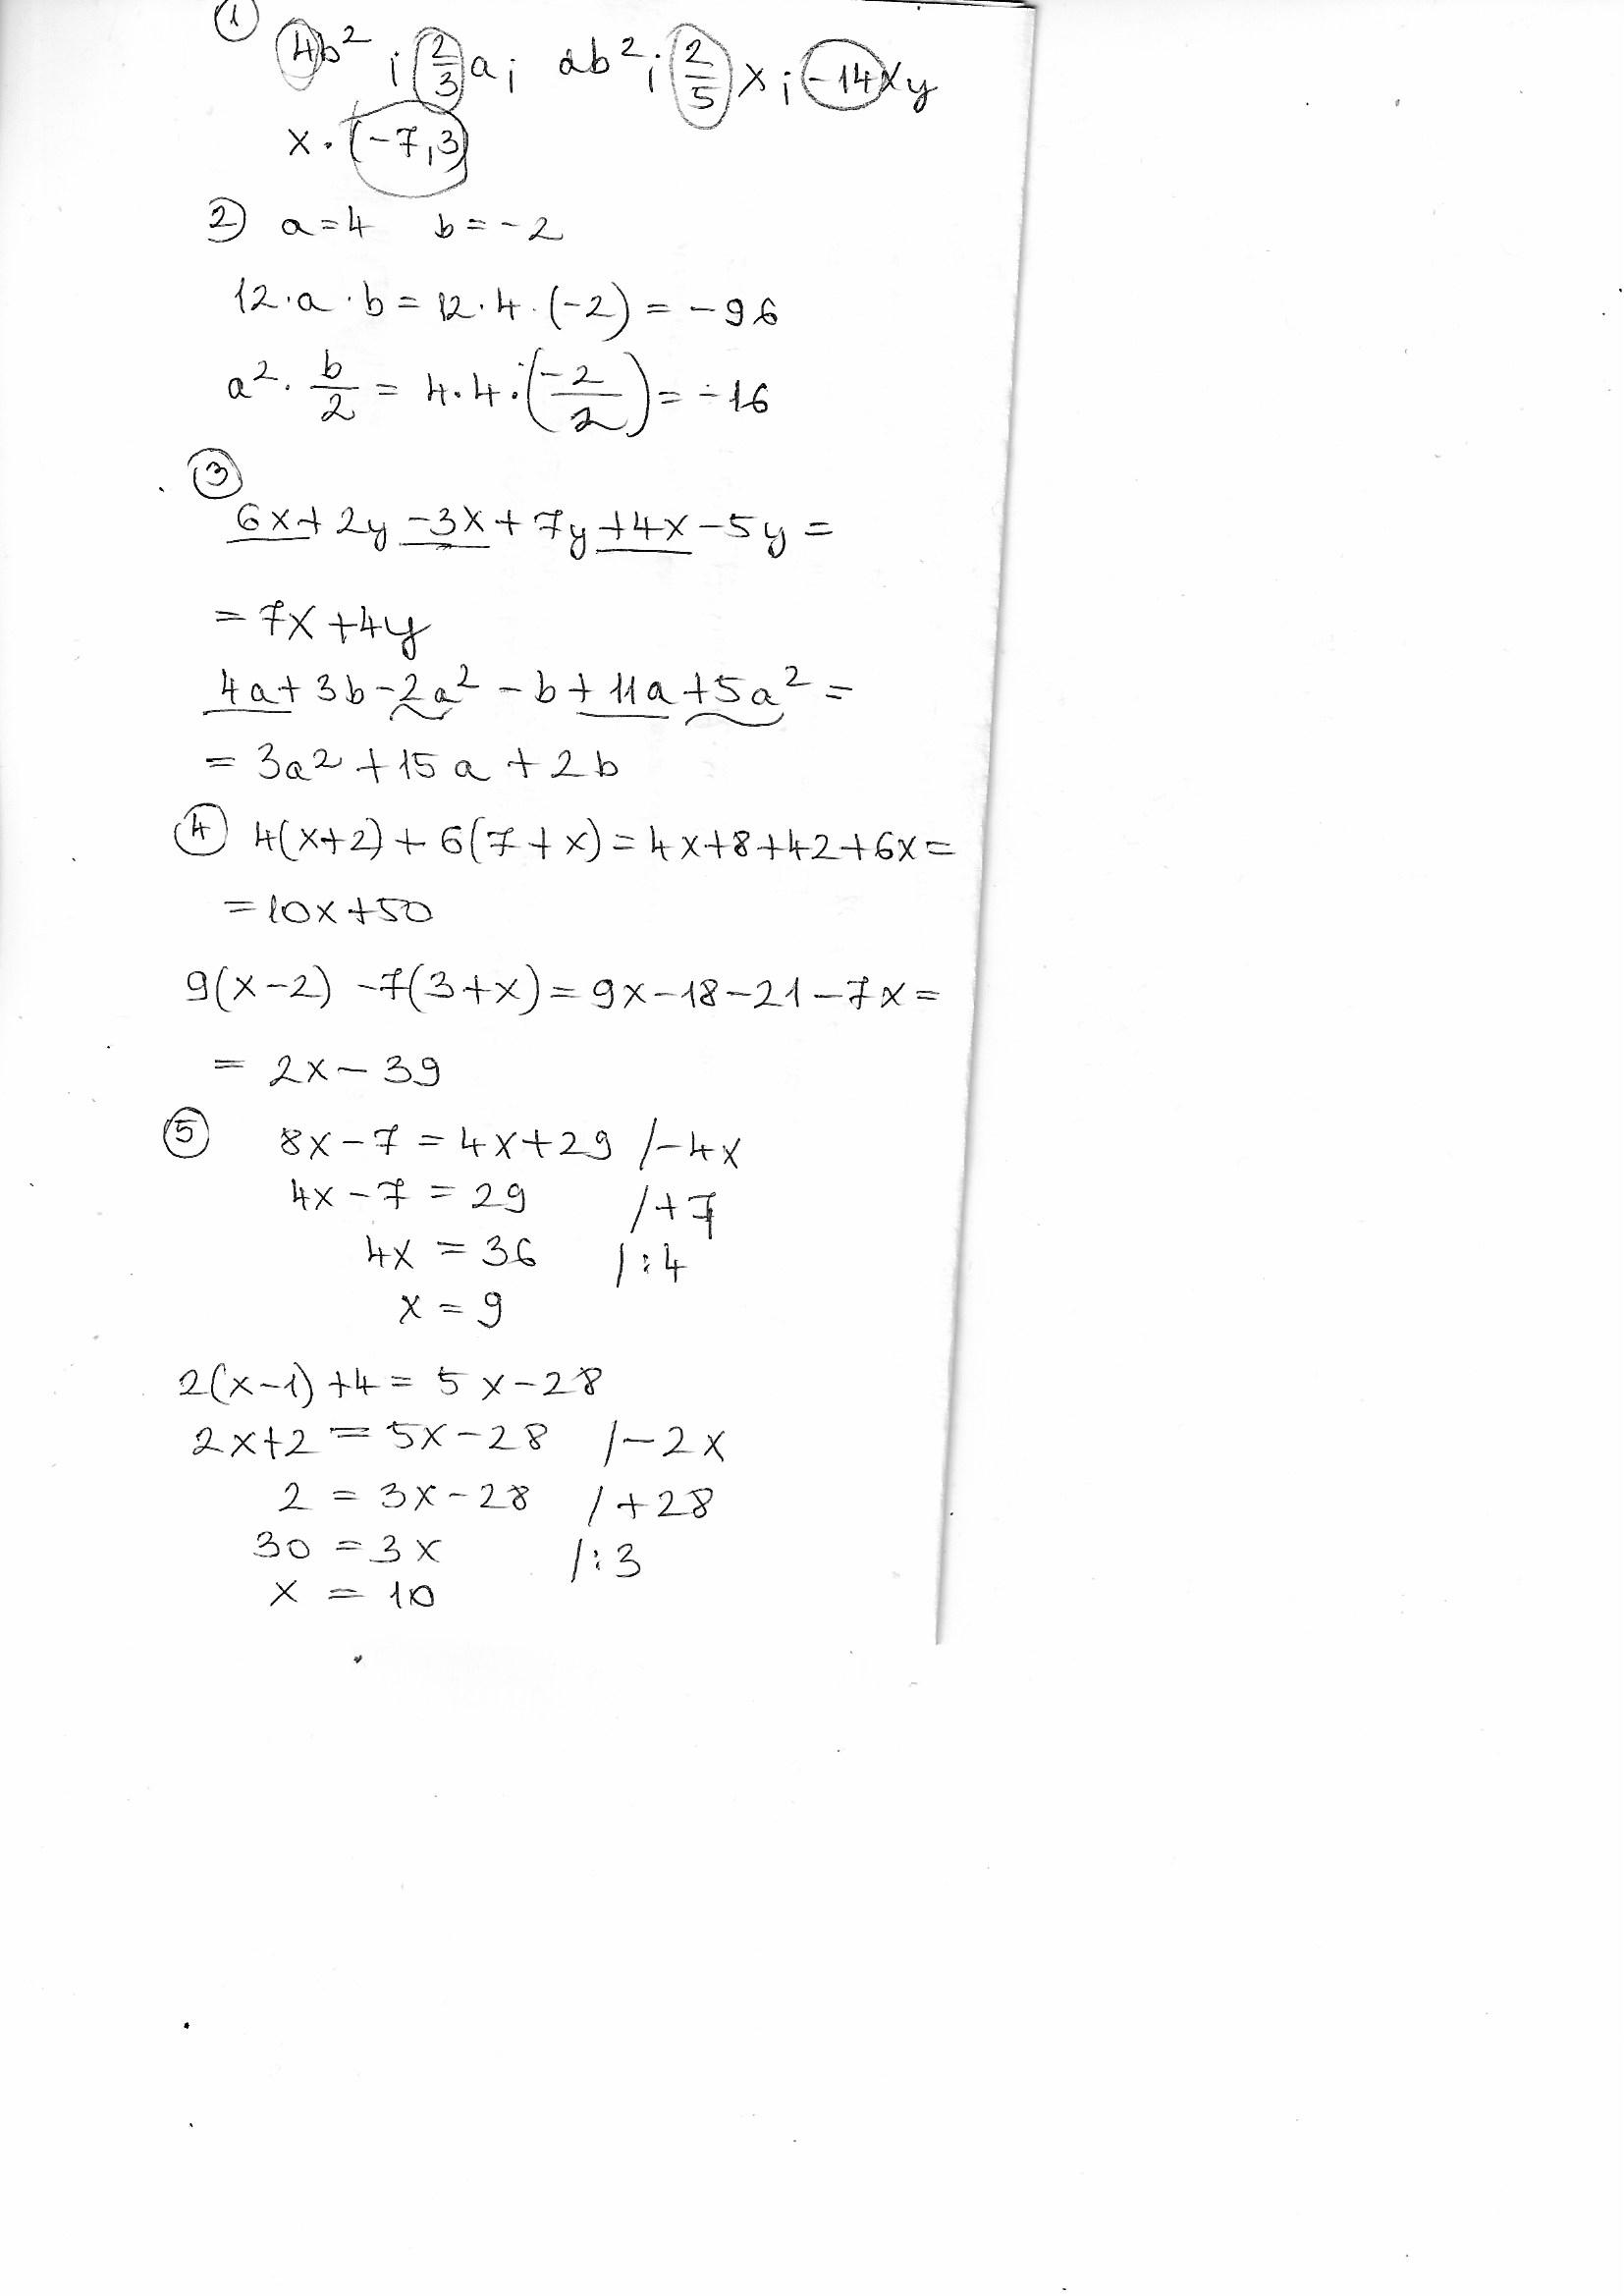 ①
4b² ; 2/3 a ; ab² ; 2/5 x ; -14xy
x · (-7,3)
② a=4 b=-2
12·a·b = 12·4·(-2) = -96
a² · b/2 = 4·4·(-2/2) = -16
③
6x+2y-3x+7y+4x-5y=
=7x+4y
4a+3b-2a²-b+11a+5a²=
=3a²+15a+2b
④ 4(x+2)+6(7+x)=4x+8+42+6x=
=10x+50
9(x-2)-7(3+x)=9x-18-21-7x=
=2x-39
⑤ 8x-7=4x+29 /-4x
4x-7=29 /+7
4x=36 /:4
x=9
2(x-1)+4=5x-28
2x+2=5x-28 /-2x
2=3x-28 /+28
30=3x /:3
x=10